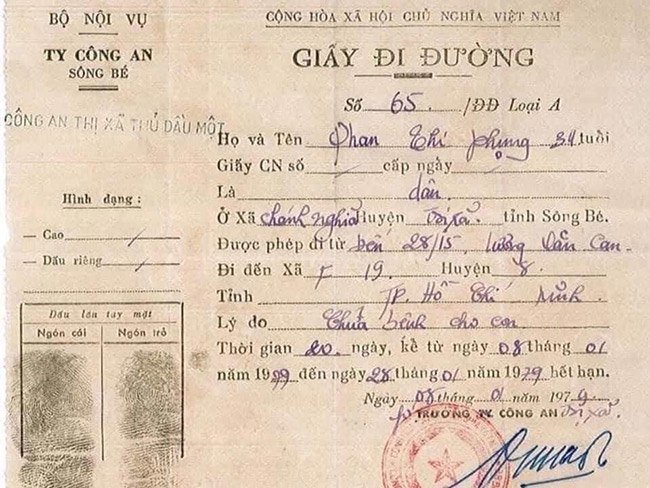 BỘ NỘI VỤ
TY CÔNG AN
SÔNG BÉ
CÔNG AN THỊ XÃ THỦ DẦU MỘT
CỘNG HÒA XÃ HỘI CHỦ NGHĨA VIỆT NAM
GIẤY ĐI ĐƯỜNG
Số 65. /ĐĐ Loại A
Họ và Tên Phan Thi Phụng 34 tuổi
Giấy CN số / cấp ngày /
Là dân
Ở Xã chánh nghĩa Huyện Thị xã. tỉnh Sông Bé.
Được phép đi từ đến 28/15 Lương Văn Can
Đi đến Xã F 19. Huyện 8.
Tỉnh TP. Hồ Chí Minh
Lý do Chữa bệnh cho con
Thời gian 20. ngày, kể từ ngày 08 tháng 01
năm 1979 đến ngày 28 tháng 01 năm 1979 hết hạn.
Ngày 08 tháng 01 năm 1979
TRƯỞNG TY CÔNG AN Thị xã.
Hình dạng :
— Cao /
— Dấu riêng /
Dấu lăn tay mặt
Ngón cái Ngón trỏ